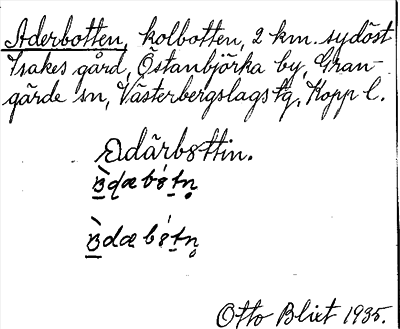 Aderbotten, kolbotten, 2 km. sydöst
Isakes gård, Östanbjörka by, Gran-
gärde sn, Västerbergslags tg, Kopp l.
Adärbottin.
Otto Blixt 1935.